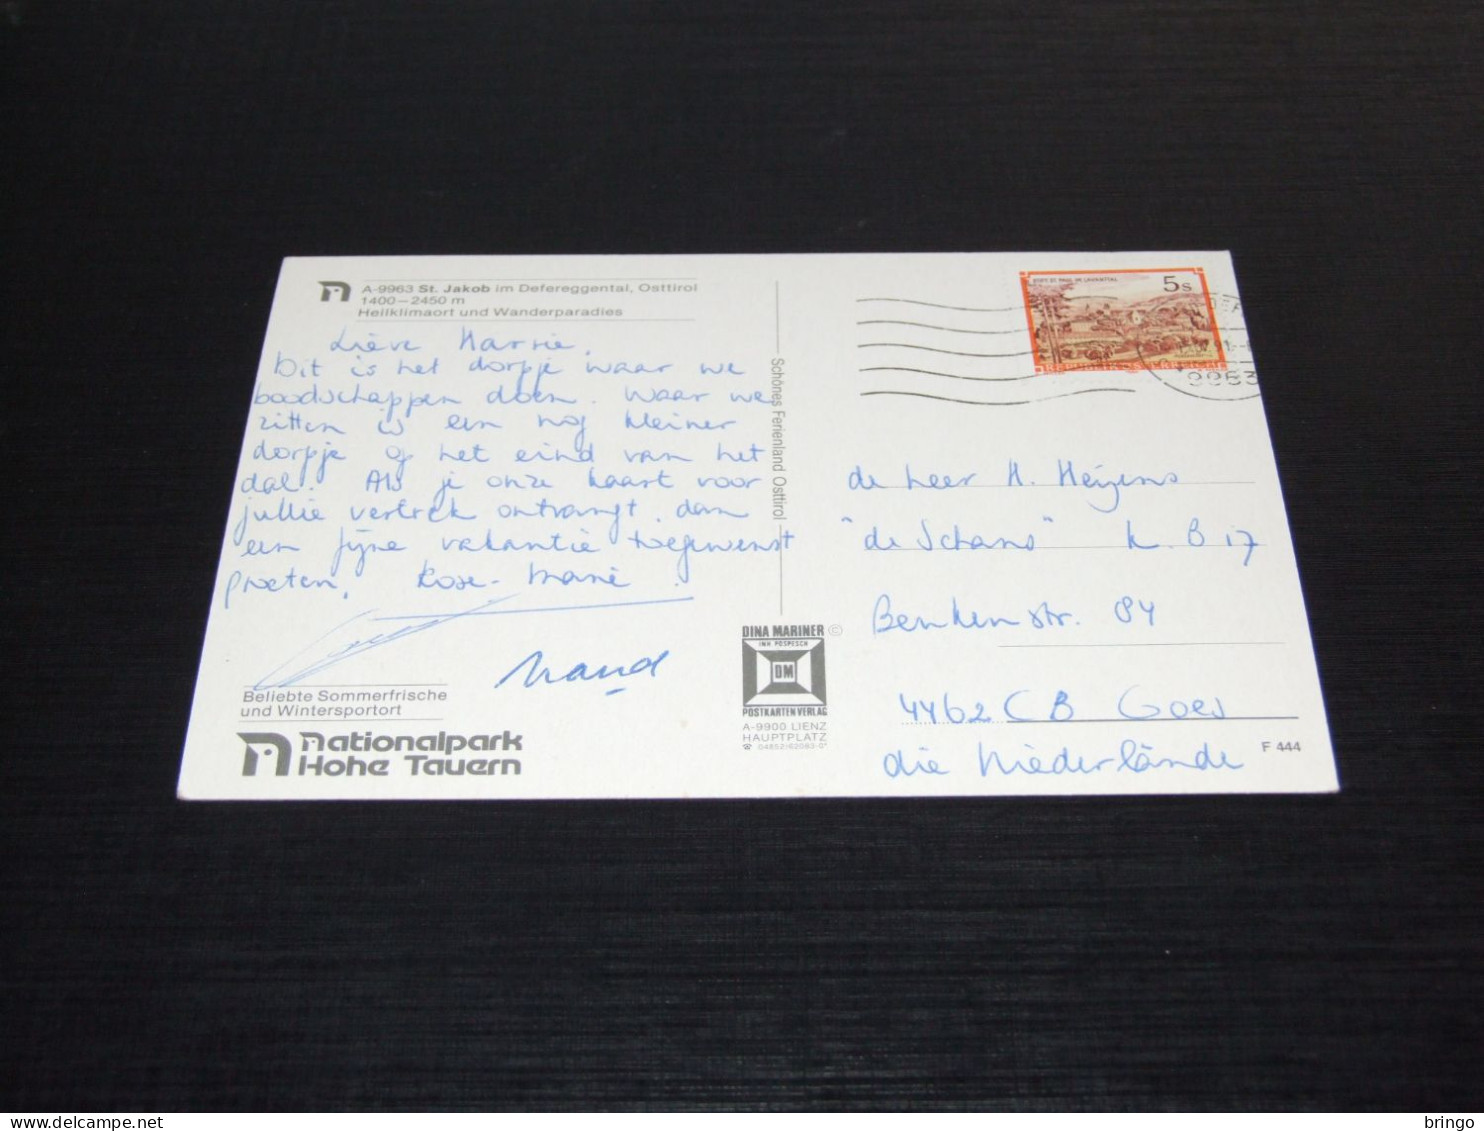 A-9963 St. Jakob im Defereggental, Osttirol
1400–2450 m
Heilklimaort und Wanderparadies
Lieve Harrie,
Dit is het dorpje waar we
boodschappen doen. Waar we
zitten is een nog kleiner
dorpje op het eind van het
dal. Als je onze kaart voor
jullie vertrek ontvangt, dan
een fijne vakantie toegewenst
groeten, Rose-Marie
Beliebte Sommerfrische
und Wintersportort
nationalpark
Hohe Tauern
Schönes Ferienland Osttirol
DINA MARINER ©
INH POSPESCH
DM
POSTKARTENVERLAG
A-9900 LIENZ
HAUPTPLATZ
☎ 04852/62083-0*
STIFT ST. PAUL IM LAVANTTAL
5s
REPUBLIK ÖSTERREICH
9963
de heer H. Heijens
"de Schans" K. B 17
Benkenstr. 84
4462 CB Goes
die Niederlände
F 444
bringo